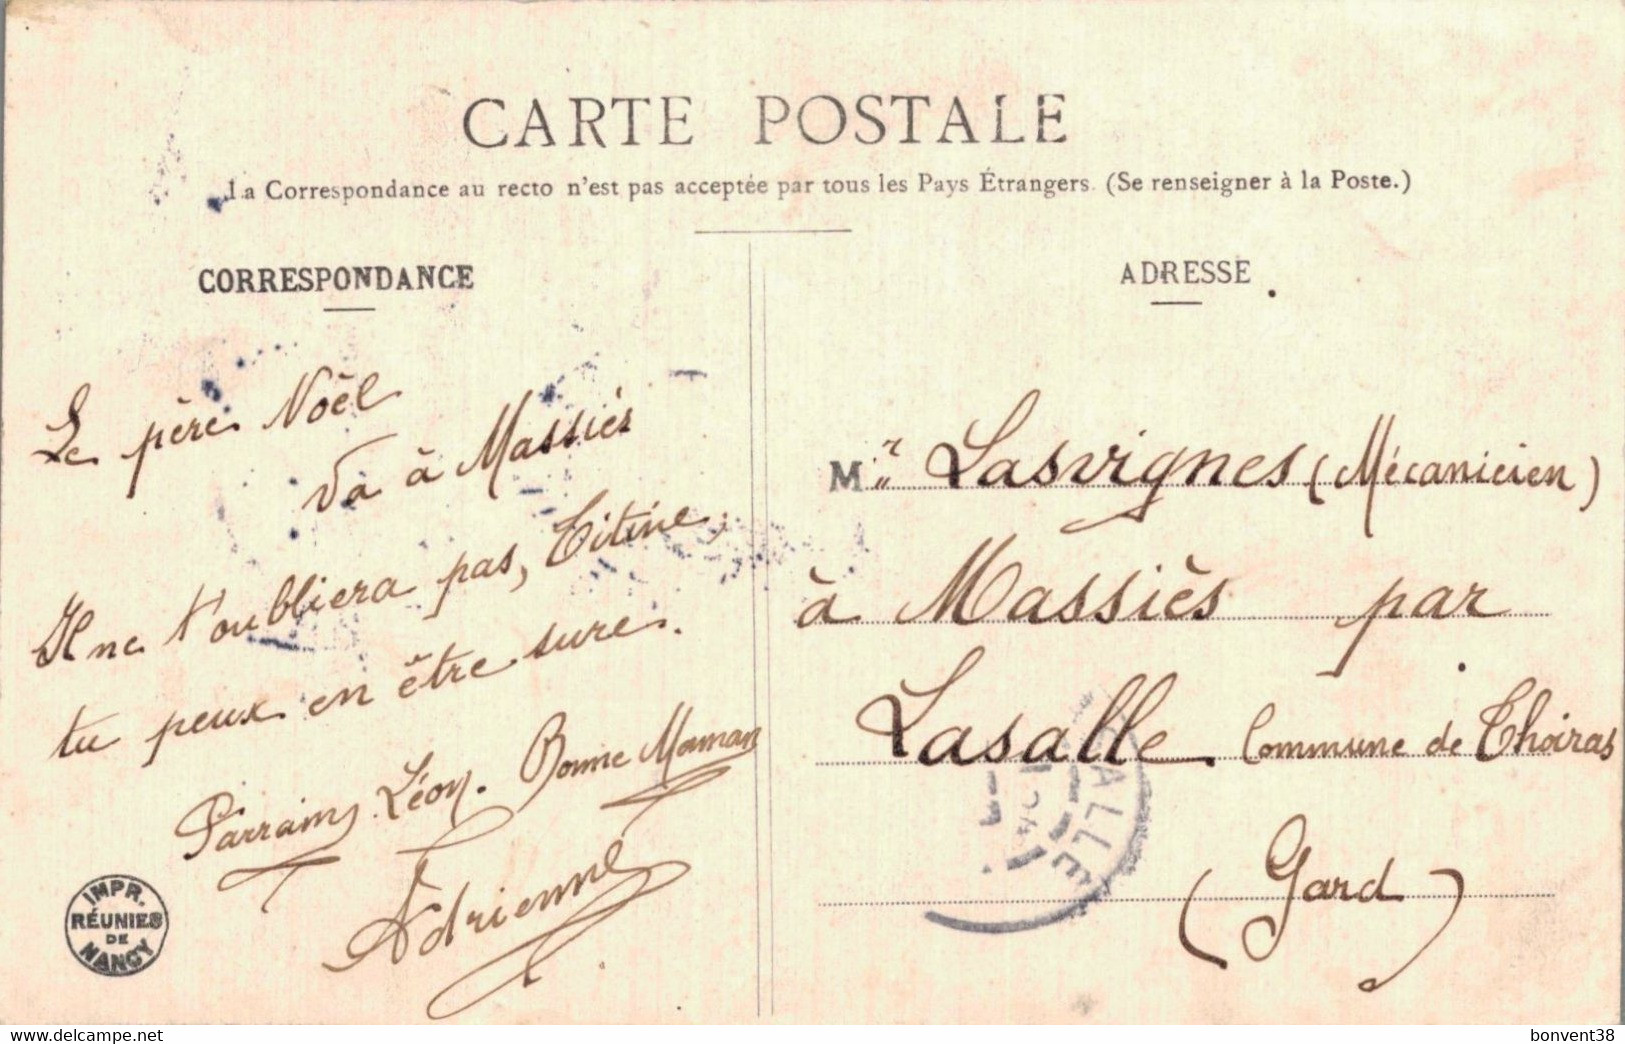 CARTE POSTALE
La Correspondance au recto n'est pas acceptée par tous les Pays Étrangers. (Se renseigner à la Poste.)
CORRESPONDANCE
Le père Noël
va à Massiès
Il ne t'oubliera pas, Titine,
tu peux en être sure.
Parrain, Léon. Bonne Maman
Adrienne
IMPR.
RÉUNIES
DE
NANCY
ADRESSE
Mr Lasvignes (Mécanicien)
à Massiès par
Lasalle Commune de Thoiras
(Gard)
delcampe.net
bonvent38